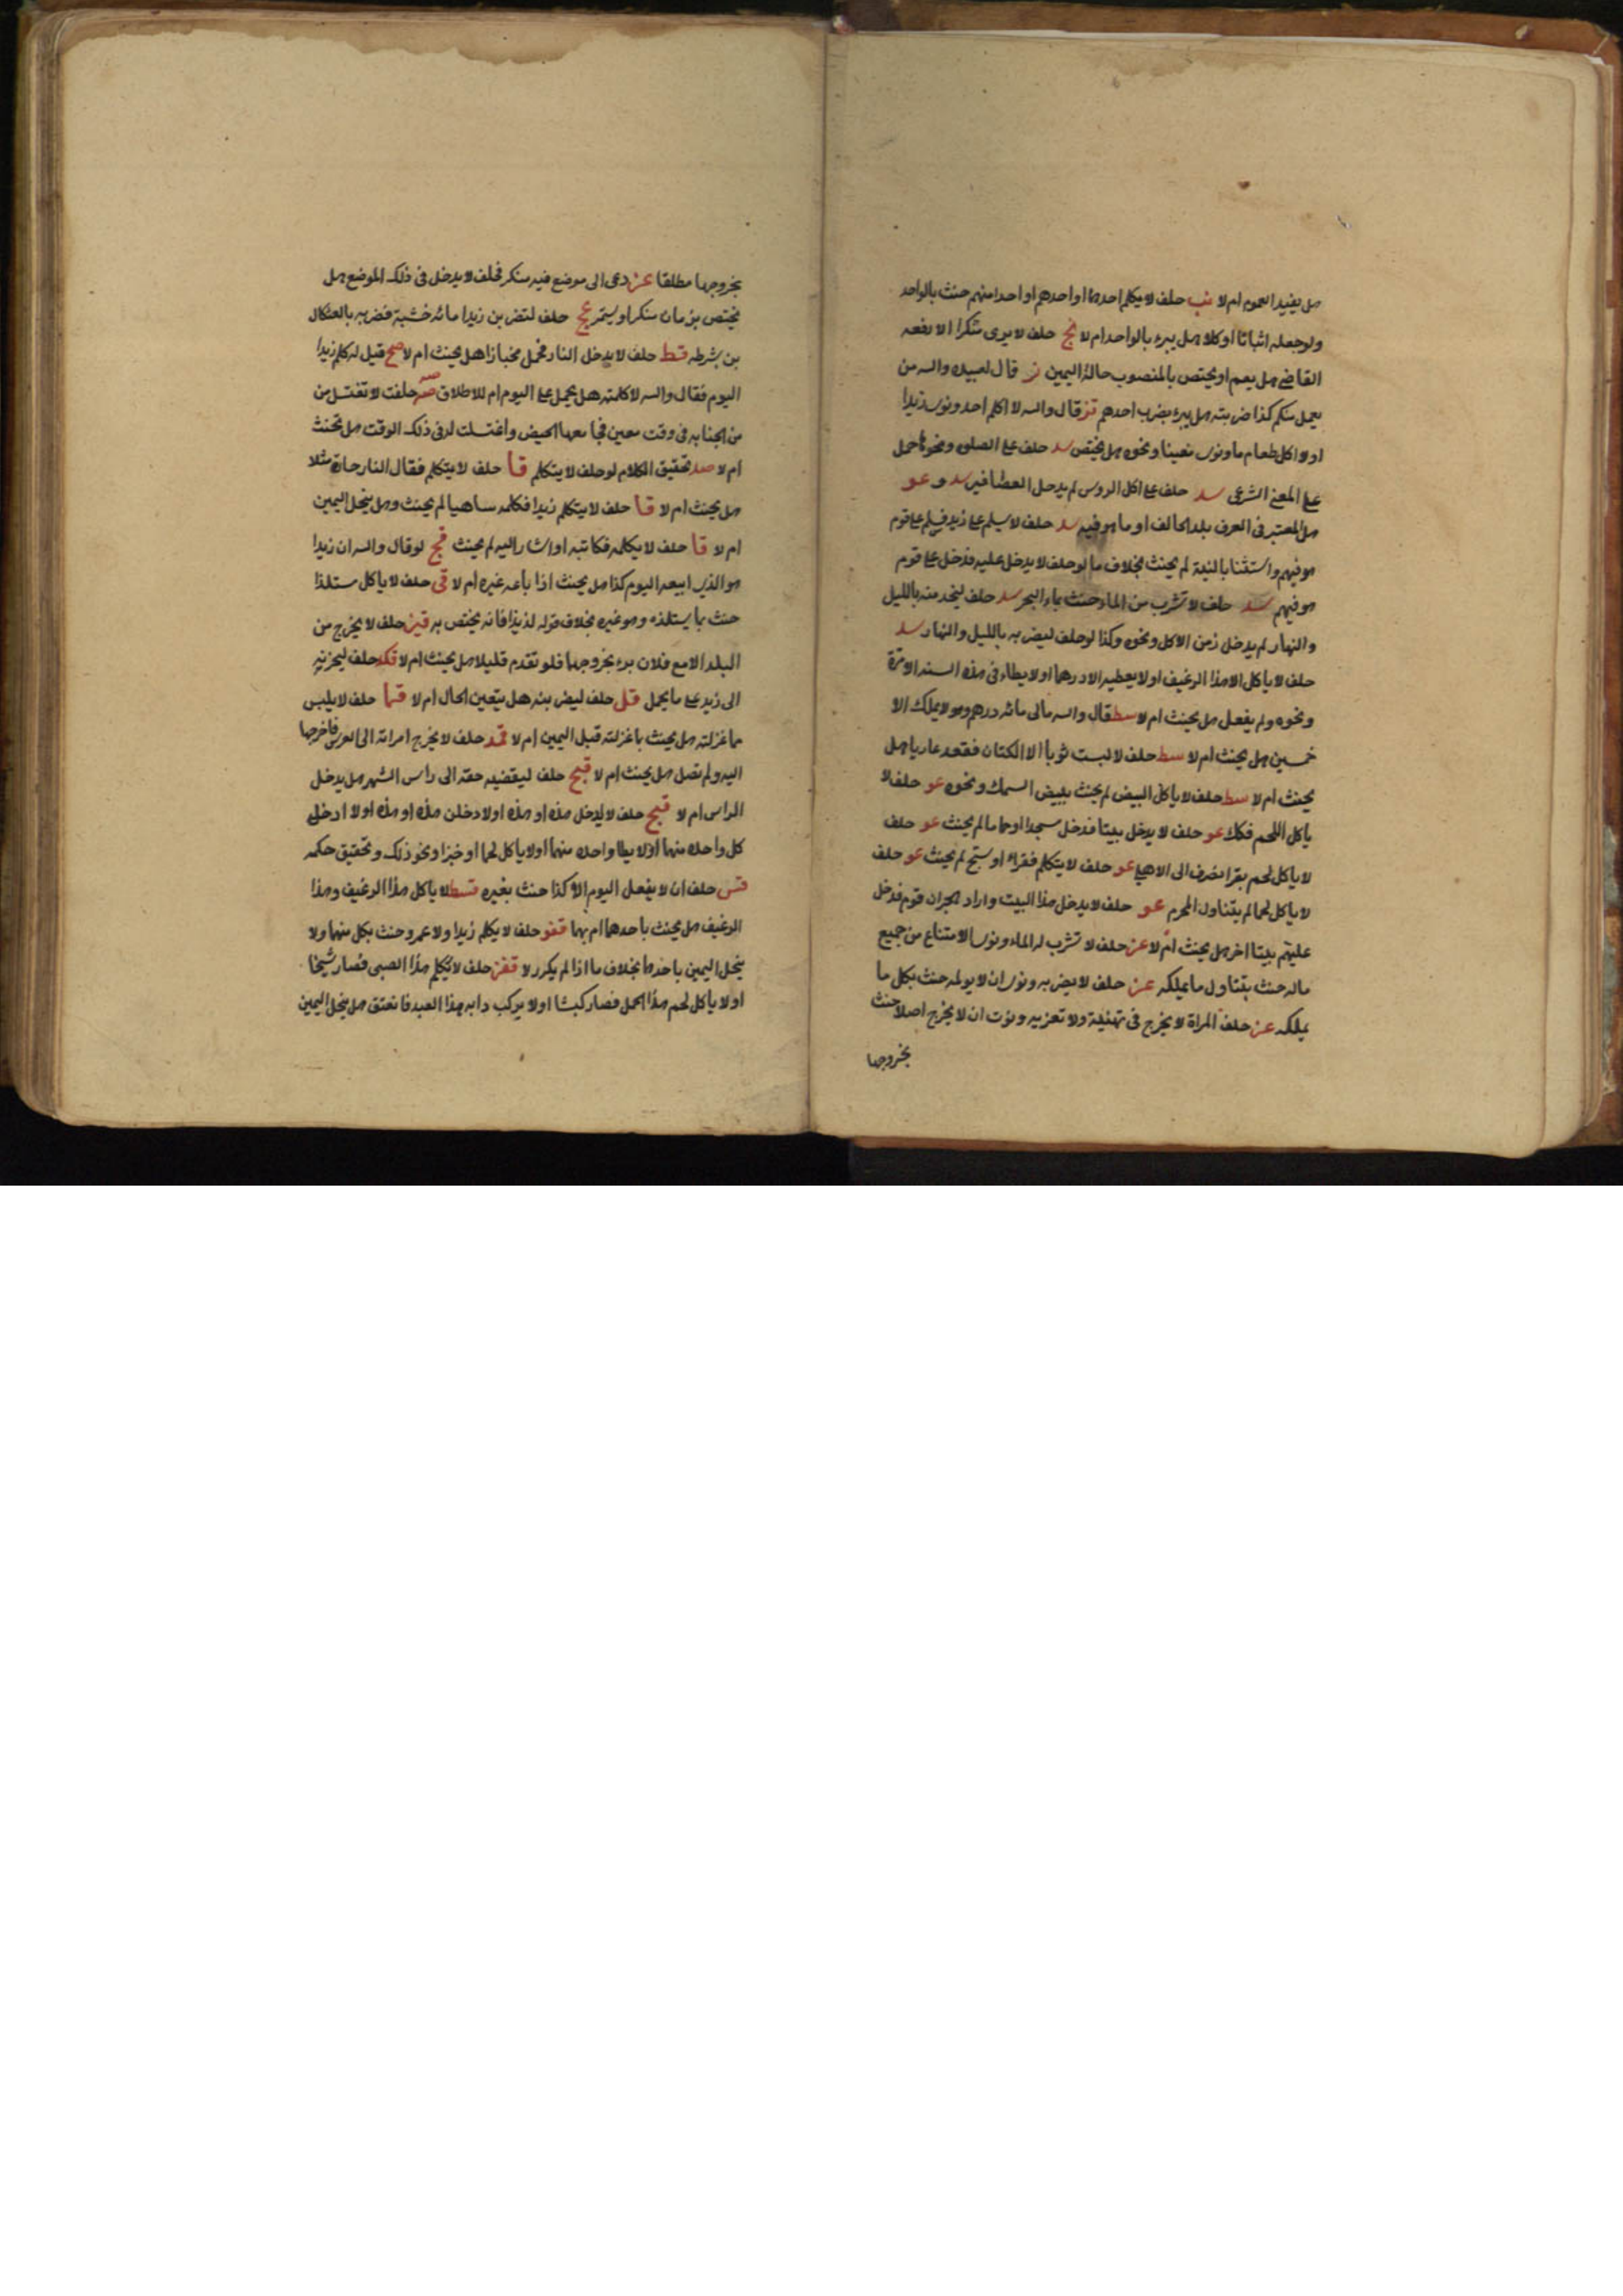 هل يفيد العموم ام لا نب حلف لا يكلم احدهما او احدهم او احدا منهم حنث بالواحد
ولو جعله اثباتا او كلا هل يبرء بالواحد ام لا نج حلف لا يرى منكرا الا رفعه
القاضى هل يعم او يختص بالمنصوب حالة اليمين ز قال لعبيده والله من
يعمل منكم كذا ضربته هل يبرء بضرب احدهم تز قال والله لا اكلم احد ونوى زيدا
او لا اكل طعاما ونوى معينا ونحوه هل يختص سد حلف على الصلوة ونحوها حمل
على المعنى الشرعى سد حلف على اكل الروس لم يدخل العصافير سد و عو
هل المعتبر فى العرف بلد الحالف او ما هو فيه سد حلف لا يسلم على زيد فسلم على قوم
هو فيهم واستثنا بالنية لم يحنث بخلاف ما لو حلف لا يدخل عليه فدخل على قوم
هو فيهم سد حلف لا تشرب من الماء حنث بماء البحر سد حلف ليخدمنه بالليل
والنهار لم يدخل زمن الاكل ونحوه وكذا لو حلف ليضربه بالليل والنهار سد
حلف لا ياكل الا هذا الرغيف او لا يعطيه الا درهما او لا يطاء فى هذه السنه الا مرة
ونحوه ولم يفعل هل يحنث ام لا سط قال والله مالى مائه درهم وهو لا يملك الا
خمسين هل يحنث ام لا سط حلف لا لبست ثوبا الا الكتان فقعد عاريا هل
يحنث ام لا سط حلف لا ياكل البيض لم يحنث ببيض السمك ونحوه عو حلف لا
ياكل اللحم فكك عو حلف لا يدخل بيتا فدخل مسجدا او حماما لم يحنث عو حلف
لا ياكل لحم بقر انصرف الى الاهلى عو حلف لا يتكلم فقراء او سبح لم يحنث عو حلف
لا ياكل لحما لم يتناول المحرم عو حلف لا يدخل هذا البيت واراد هجران قوم فدخل
عليهم بيتا اخر هل يحنث ام لا عز حلف لا تشرب له الماء ونوى الامتناع من جميع
ماله حنث بتناول ما يملكه عز حلف لا يضربه ونوى ان لا يولمه حنث بكل ما
يملكه عز حلف المراة لا يخرج فى تهنية ولا تعزيه ونوت ان لا يخرج اصلا حنث
بخروجها
بخروجها مطلقا عز دعى الى موضع فيه منكر فحلف لا يدخل فى ذلك الموضع هل
يختص بزمان منكر او يستمر عج حلف لتضربن زيدا مائه خشبة فضربه بالعثكال
بن بشرطه قط حلف لا يدخل النار فحمل مخبازا هل يحنث ام لا صح قيل له كلم زيدا
اليوم فقال والله لا كلمته هل يحمل على اليوم ام للاطلاق حلفت لا تغتسل من
من الجنابه فى وقت معين فجامعها الحيض واغتسلت له فى ذلك الوقت هل تحنث
ام لا صد تحقيق الكلام لو حلف لا يتكلم قا حلف لا يتكلم فقال النار حارة مثلا
هل يحنث ام لا قا حلف لا يتكلم زيدا فكلمه ساهيا لم يحنث وهل ينحل اليمين
ام لا قا حلف لا يكلمه فكاتبه او اشار اليه لم يحنث قح لو قال والله ان زيدا
هو الذى ابيعه اليوم كذا هل يحنث اذا باعه غيره ام لا قى حلف لا ياكل مستلذا
حنث بما يستلذه وهو غيره بخلاف قوله لذيذا فانه يختص به قيز حلف لا يخرج من
البلد الا مع فلان برء بخروجهما فلو تقدم قليلا هل يحنث ام لا قكد حلف
الى زيد على ما يحمل قل حلف ليضربنه هل يتعين الحال ام لا قما حلف لا يلبس
ما غزلته هل يحنث بما غزلته قبل اليمين ام لا قمد حلف لا يخرج امراته الى العرس فاخرجها
اليه ولم تصل هل يحنث ام لا حلف ليقضينه حقه الى راس الشهر هل يدخل
الراس ام لا حلف لا يدخل هذه او هذه او لا دخلن هذه او هذه او لا ادخل
كل واحده منهما او لا يطا واحده منهما او لا ياكل لحما او خبزا ونحو ذلك وتحقيق حكمه
قس حلف ان لا يفعل اليوم الا كذا حنث بغيره قسط لا ياكل هذا الرغيف وهذا
الرغيف هل يحنث باحدهما ام بهما قفو حلف لا يكلم زيدا ولا عمرو حنث بكل منهما ولا
ينحل اليمين باحدهما بخلاف ما اذا لم يكرر لا قفز حلف لا يكلم هذا الصبى فصار شيخا
او لا ياكل لحم هذا الحمل فصار كبشا او لا يركب دابه هذا العبد فانعتق هل ينحل اليمين